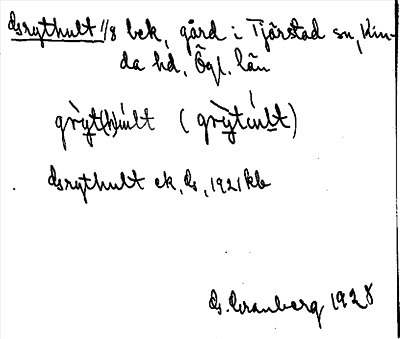 Grythult 1/8 bek, gård i Tjärstad sn, Kin-
da hd, Ögl. län
grỳt(h)últ (grỳtúlt)
Grythult ek, G, 1921 kb
G. Granberg 1928